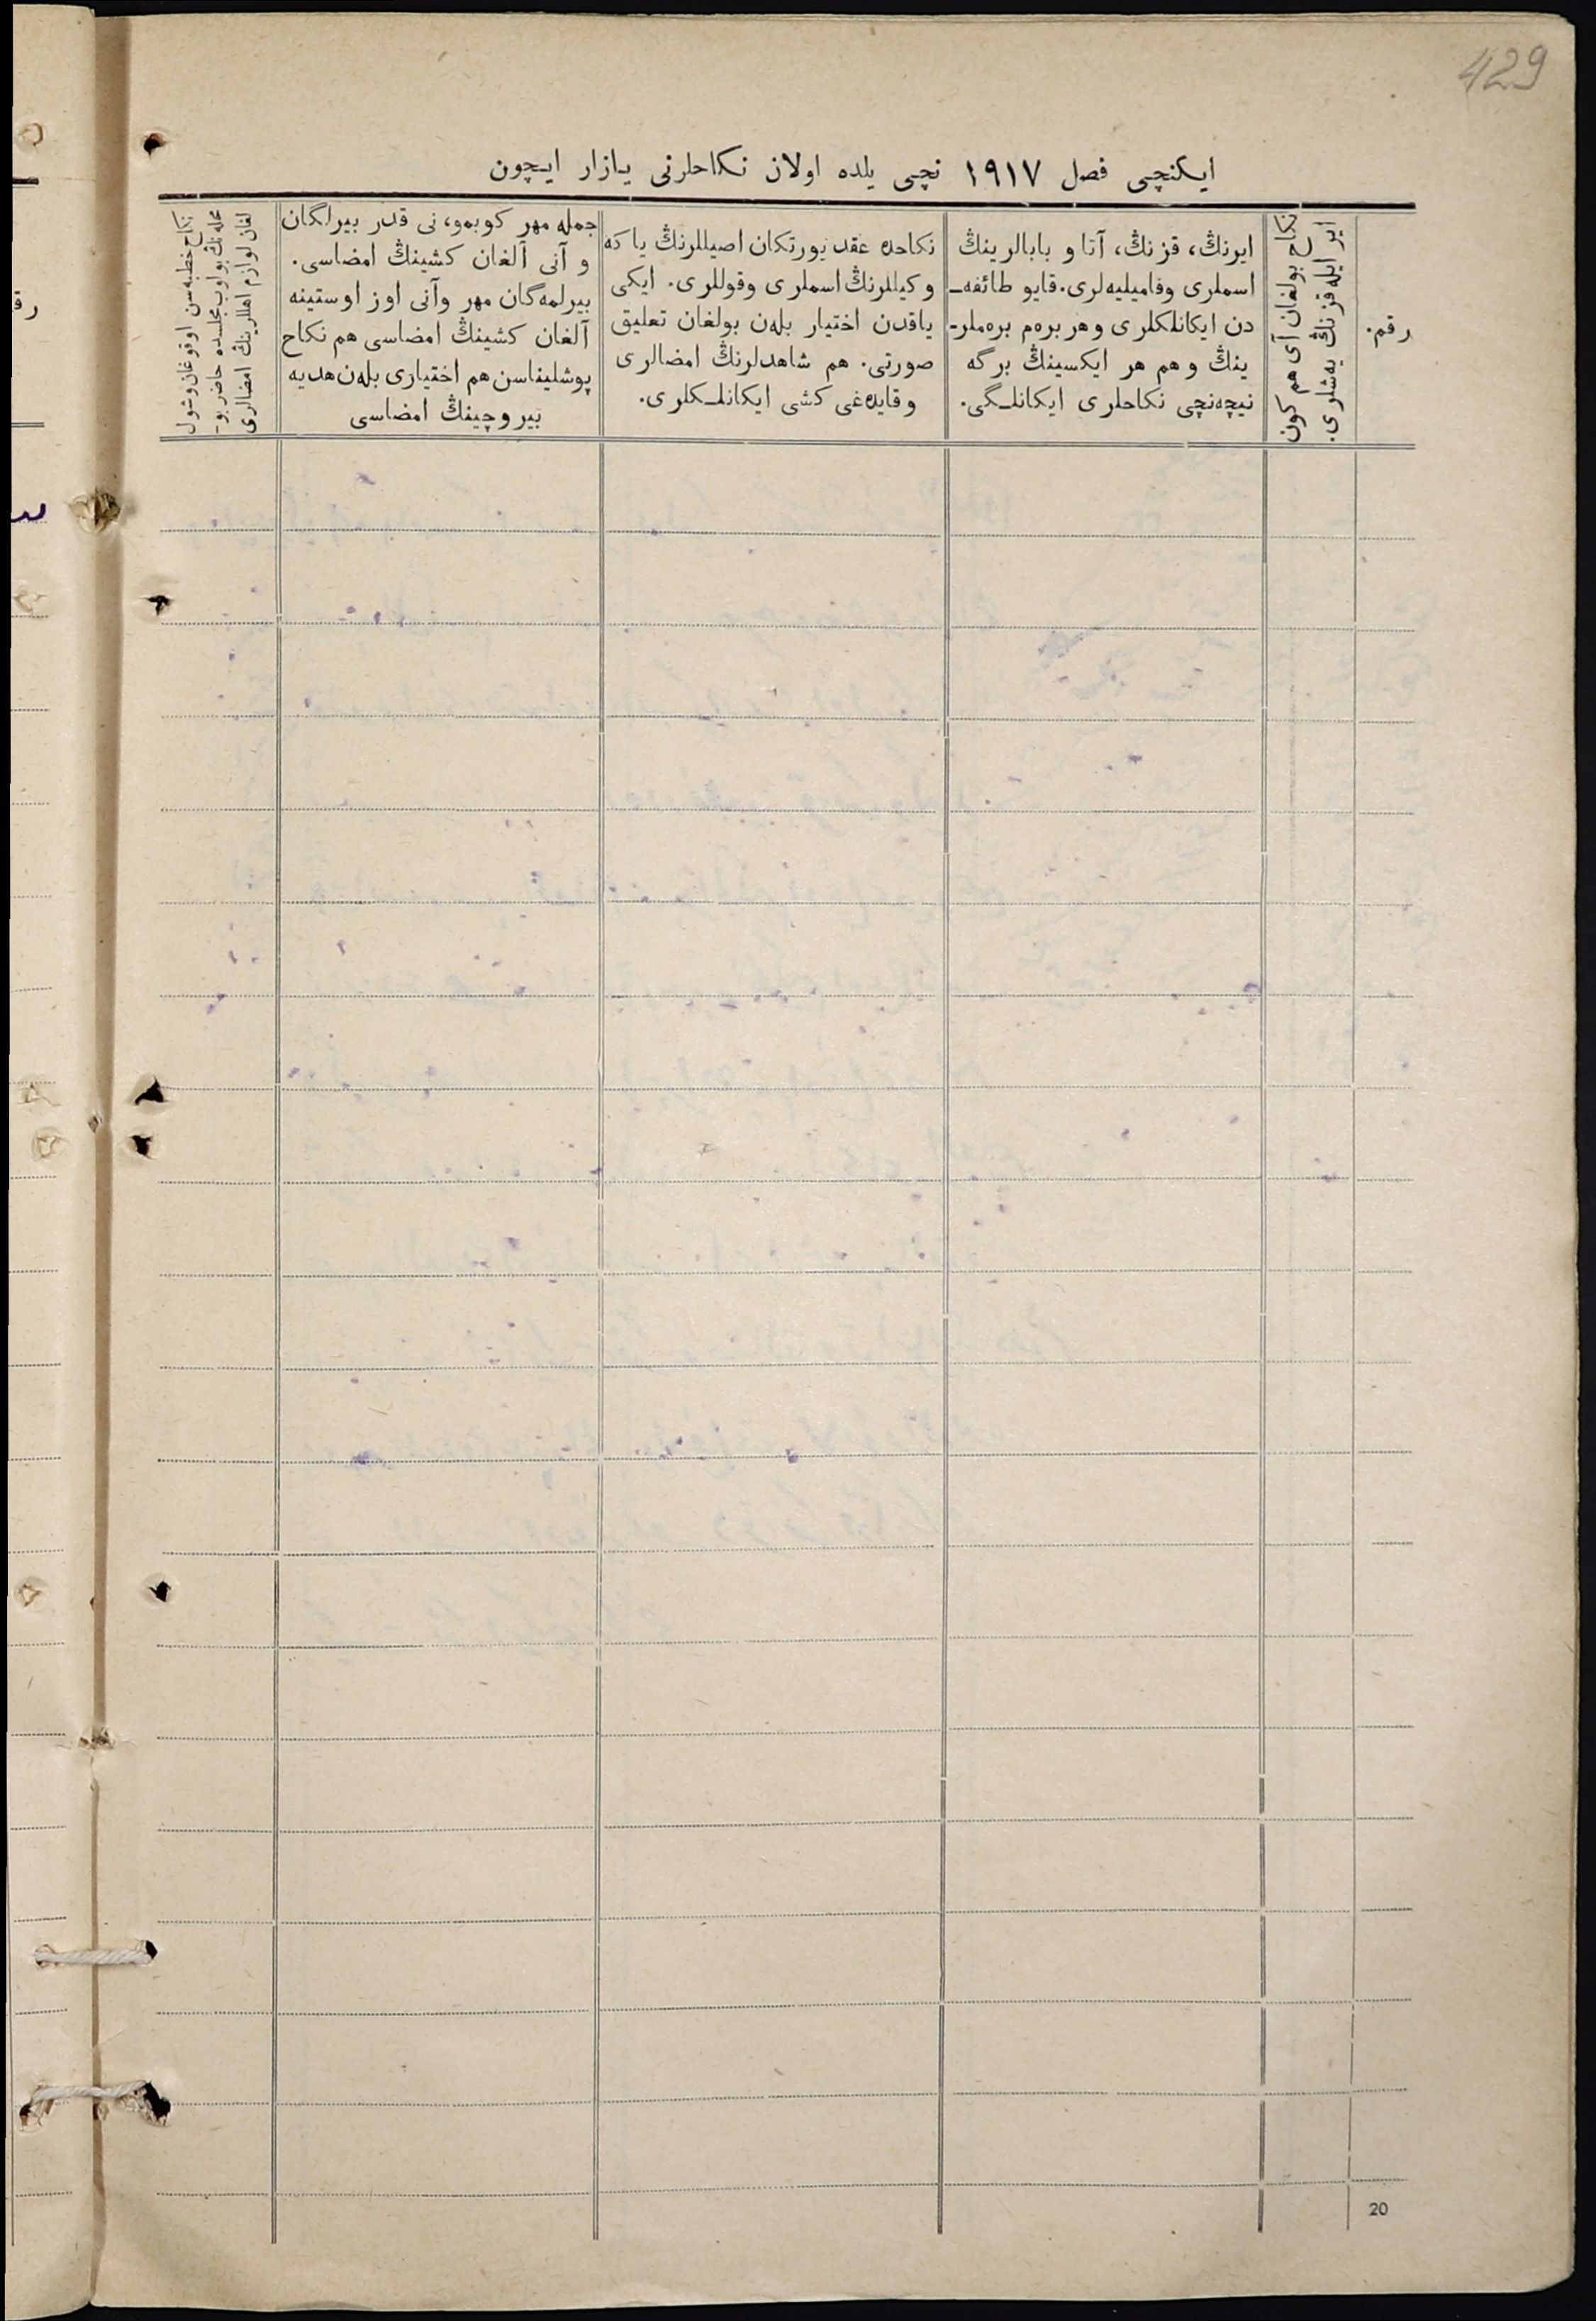 429
ایکنچی فصل ١٩١٧ نچی یلده اولان نکاحلرنی یازار ایچون
رقم.
ایر ایله قزنڭ یه‌شلری.
نکاح بولغان آی هم کون
ایرنڭ، قزنڭ، آتا و بابالرینڭ
اسملری وفامیلیه‌لری. قایو طائفه‌ـ
دن ایکانلکلری و هر بره‌م بره‌ملر-
ینڭ و هم هر ایکسینڭ برگه
نیچه‌نچی نکاحلری ایکانلـگی.
نکاحده عقد یورتکان اصیللرنڭ یا که
وکیللرنڭ اسملری وقوللری. ایکی
یاقدن اختیار بله‌ن بولغان تعلیق
صورتی. هم شاهدلرنڭ امضالری
وقایده‌غی کشی ایکانلـکلری.
جمله مهر کوبمو، نی قدر بیرلگان
و آنی آلغان کشینڭ امضاسی.
بیرلمه‌گان مهر وآنی اوز اوستینه
آلغان کشینڭ امضاسی هم نکاح
پوشلیناسن هم اختیاری بله‌ن هدیه
بیروچینڭ امضاسی
نکاح خطبه‌سن اوقوغان وشول
محله‌نڭ بو اوب مجلسده حاضر بو-
لغان لوازم اهللرینڭ امضالری
20